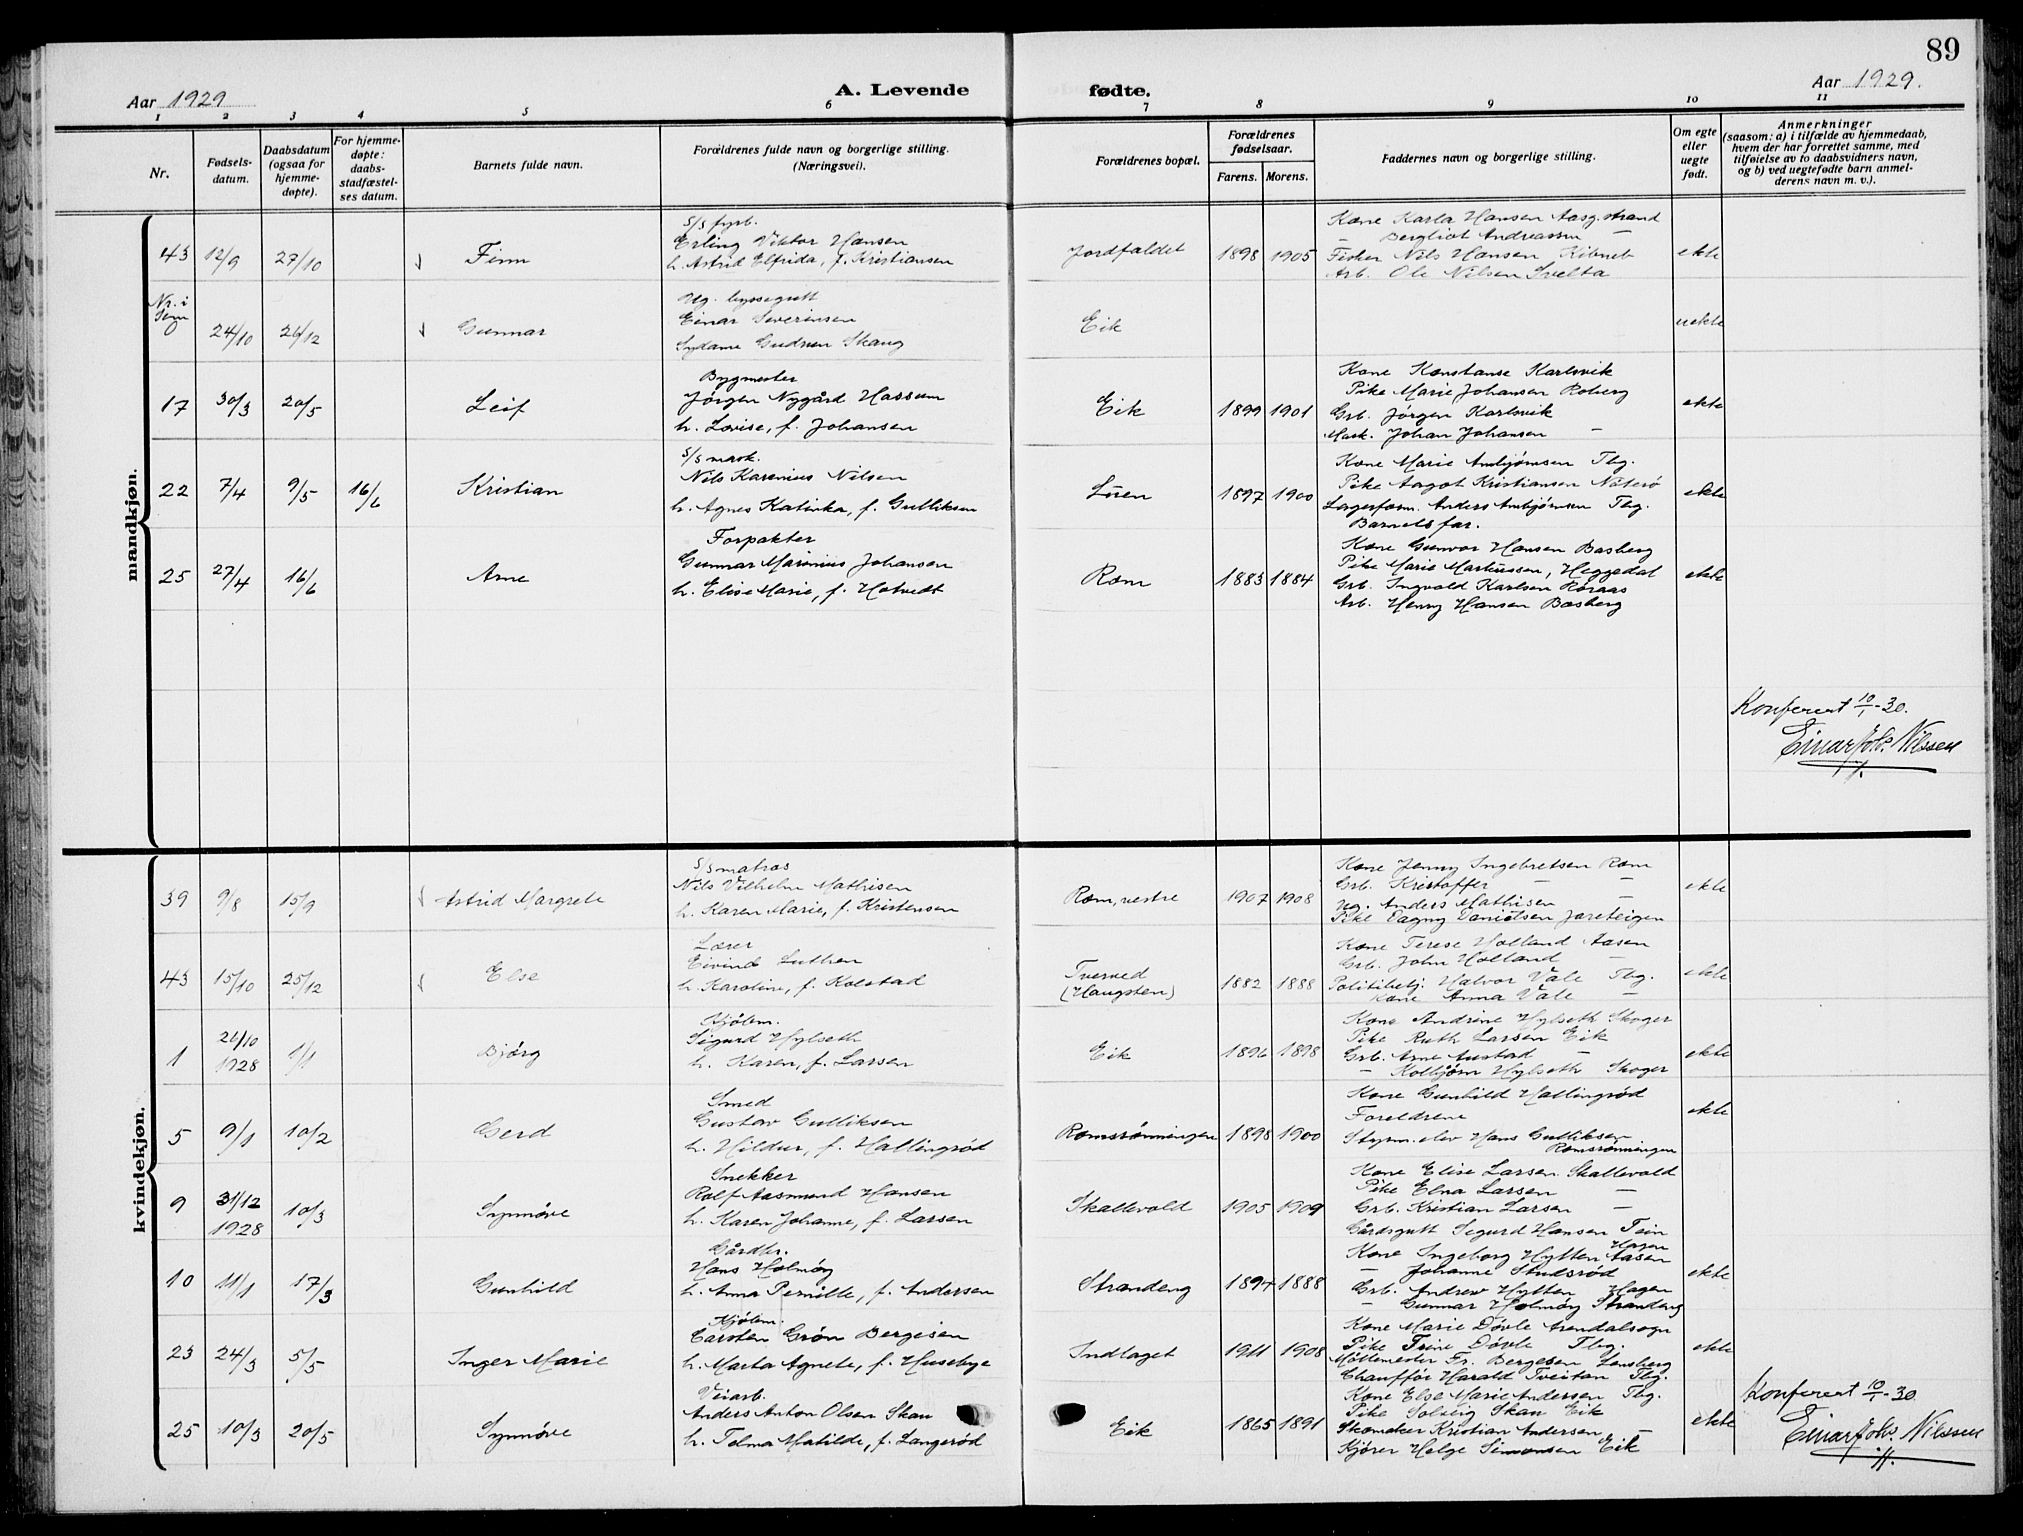 89
Aar 1929
A. Levende
fødte.
Aar 1929.
1 2 3 4 5 6 7 8 9 10 11
Nr.
Fødsels-
datum.
Daabsdatum
(ogsaa for
hjemme-
døpte).
For hjemme-
døpte:
daabs-
stadfæstel-
ses datum.
Barnets fulde navn.
Forældrenes fulde navn og borgerlige stilling.
(Næringsvei).
Forældrenes bopæl.
Forældrenes
fødselsaar.
Farens. Morens.
Faddernes navn og borgerlige stilling.
Om egte
eller
uegte
født.
Anmerkninger
(saasom: a) i tilfælde av hjemmedaab,
hvem der har forrettet samme, med
tilføielse av to daabsvidners navn,
og b) ved uegtefødte barn anmel-
derens navn m. v.).
mandkjøn.
43 12/9 27/10 Finn
s/s fyrb.
Erling Viktor Hansen
h. Astrid Elfrida, f. Kristiansen
Jordfaldet 1898 1905
Kone Karla Hansen Aasg.strand
— Bergliot Andreassen —
Fisker Nils Hansen
Arb. Ole Nilsen Svelta
ekte
Nr. i
Sem
24/10 26/12 Gunnar
Ug. byssegutt
Einar Severinsen
Gudrun Skaug
Eik
uekte
17 30/3 20/5 Leif
Bygmester
Jørgen Nygård Hassum
h. Lovise, f. Johansen
Eik 1899 1901
Kone Konstanse Karlsvik
Pike Marie Johansen Roberg
Grb. Jørgen Karlsvik
Mask. Johan Johansen —
ekte
22 7/4 9/5 16/6 Kristian
s/s mask.
Nils Karenius Nilsen
h. Agnes Katinka, f. Gulliksen
Løren 1897 1900
Kone Marie Ambjørnsen Tbg.
Pike Aagot Kristiansen Nøterø
Lagerform. Anders Ambjørnsen Tbg.
Barnets far.
ekte
25 27/4 16/6 Arne
Forpakter
Gunnar Marinius Johansen
h. Elise Marie, f. Hotvedt
Rom 1883 1884
Kone Gunvor Hansen Basberg
Pike Marie Martinssen, Heggedal
Grb. Ingvald Karlsen Røraas
Arb. Henry Hansen Basberg
ekte
Konferert 10/1-30.
Einar Joh. Nilssen
kvindekjøn.
39 9/8 15/9 Astrid Margrete
s/s matros
Nils Vilhelm Mathisen
h. Karen Marie, f. Kristensen
Rom, vestre 1907 1908
Kone Jenny Ingebretsen Rom
Grb. Kristoffer — —
Ug. Anders Mathisen —
Pike Dagny Danielsen Jareteigen
ekte
43 15/10 25/12 Else
Lærer
Eivind Luthen
h. Karoline, f. Kolstad
Tverved
(Haugsten)
1882 1888
Kone Terese Holland Aasen
Grb. John Holland —
Politibetj. Halvor Vale Tbg.
Kone Anna Vale —
ekte
1 26/10
1928 1/1 Bjørg
Kjølem.
Sigurd Hylseth
h. Karen, f. Larsen
Eik 1896 1898
Kone Andrine Hylseth Skoger
Pike Ruth Larsen Eik
Grb. Arne Austad —
— Kolbjørn Hylseth Skoger
ekte
5 9/1 10/2 Gerd
Smed
Gustav Gulliksen
h. Hildur, f. Hallingrød
Romsrønningen 1898 1900
Kone Gunhild Hallingrød
Foreldrene
Styrm. elev Hans Gulliksen
Romsrønningen
ekte
9 31/12
1928 10/3 Synnøve
Snekker
Rolf Aasmund Hansen
h. Karen Johanne, f. Larsen
Skallevold 1905 1909
Kone Elise Larsen Skallevold
Pike Elna Larsen —
Grb. Kristian Larsen —
Gårdsgutt Sigurd Hansen Tein
10 11/1 17/3 Gunhild
Gårdbr.
Hans Holmøy
h. Anna Pernille, f. Andersen
Strandeng 1894 1888
Hagen
Kone Ingeborg Hytten Aasen
— Johanne Studsrød
Grb. Andrew Hytten Hagen
— Gunnar Holmøy Strandeng
ekte
23 24/3 5/5 Inger Marie
Kjølem.
Carsten Grøn Bergesen
h. Marta Agnete, f. Husebye
Indlaget 1911 1908
Kone Marie Døvle Arendalsogn
Pike Trine Døvle Tbg.
Møllemester Fr. Bergesen Lensberg
Chauffør Harald Tveitan Tbg.
ekte
25 10/3 20/5 Synnøve
Veiarb.
Anders Anton Olsen Skau
h. Telma Matilde, f. Langerød
Eik 1865 1891
Kone Else Marie Andersen Tbg.
Pike Solveig Skau Eik
Skomaker Kristian Andersen —
Kjører Helge Simonsen Eik
ekte
Konferert 10/1-30
Einar Joh. Nilssen